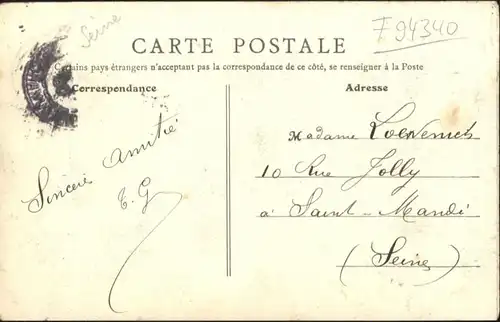 Seine
F 94340
CARTE POSTALE
Certains pays étrangers n'acceptant pas la correspondance de ce côté, se renseigner à la Poste
Correspondance
Adresse
Sincère Amitié
T. G
Madame Loewenich
10 Rue Jolly
à Saint-Mandé
(Seine)